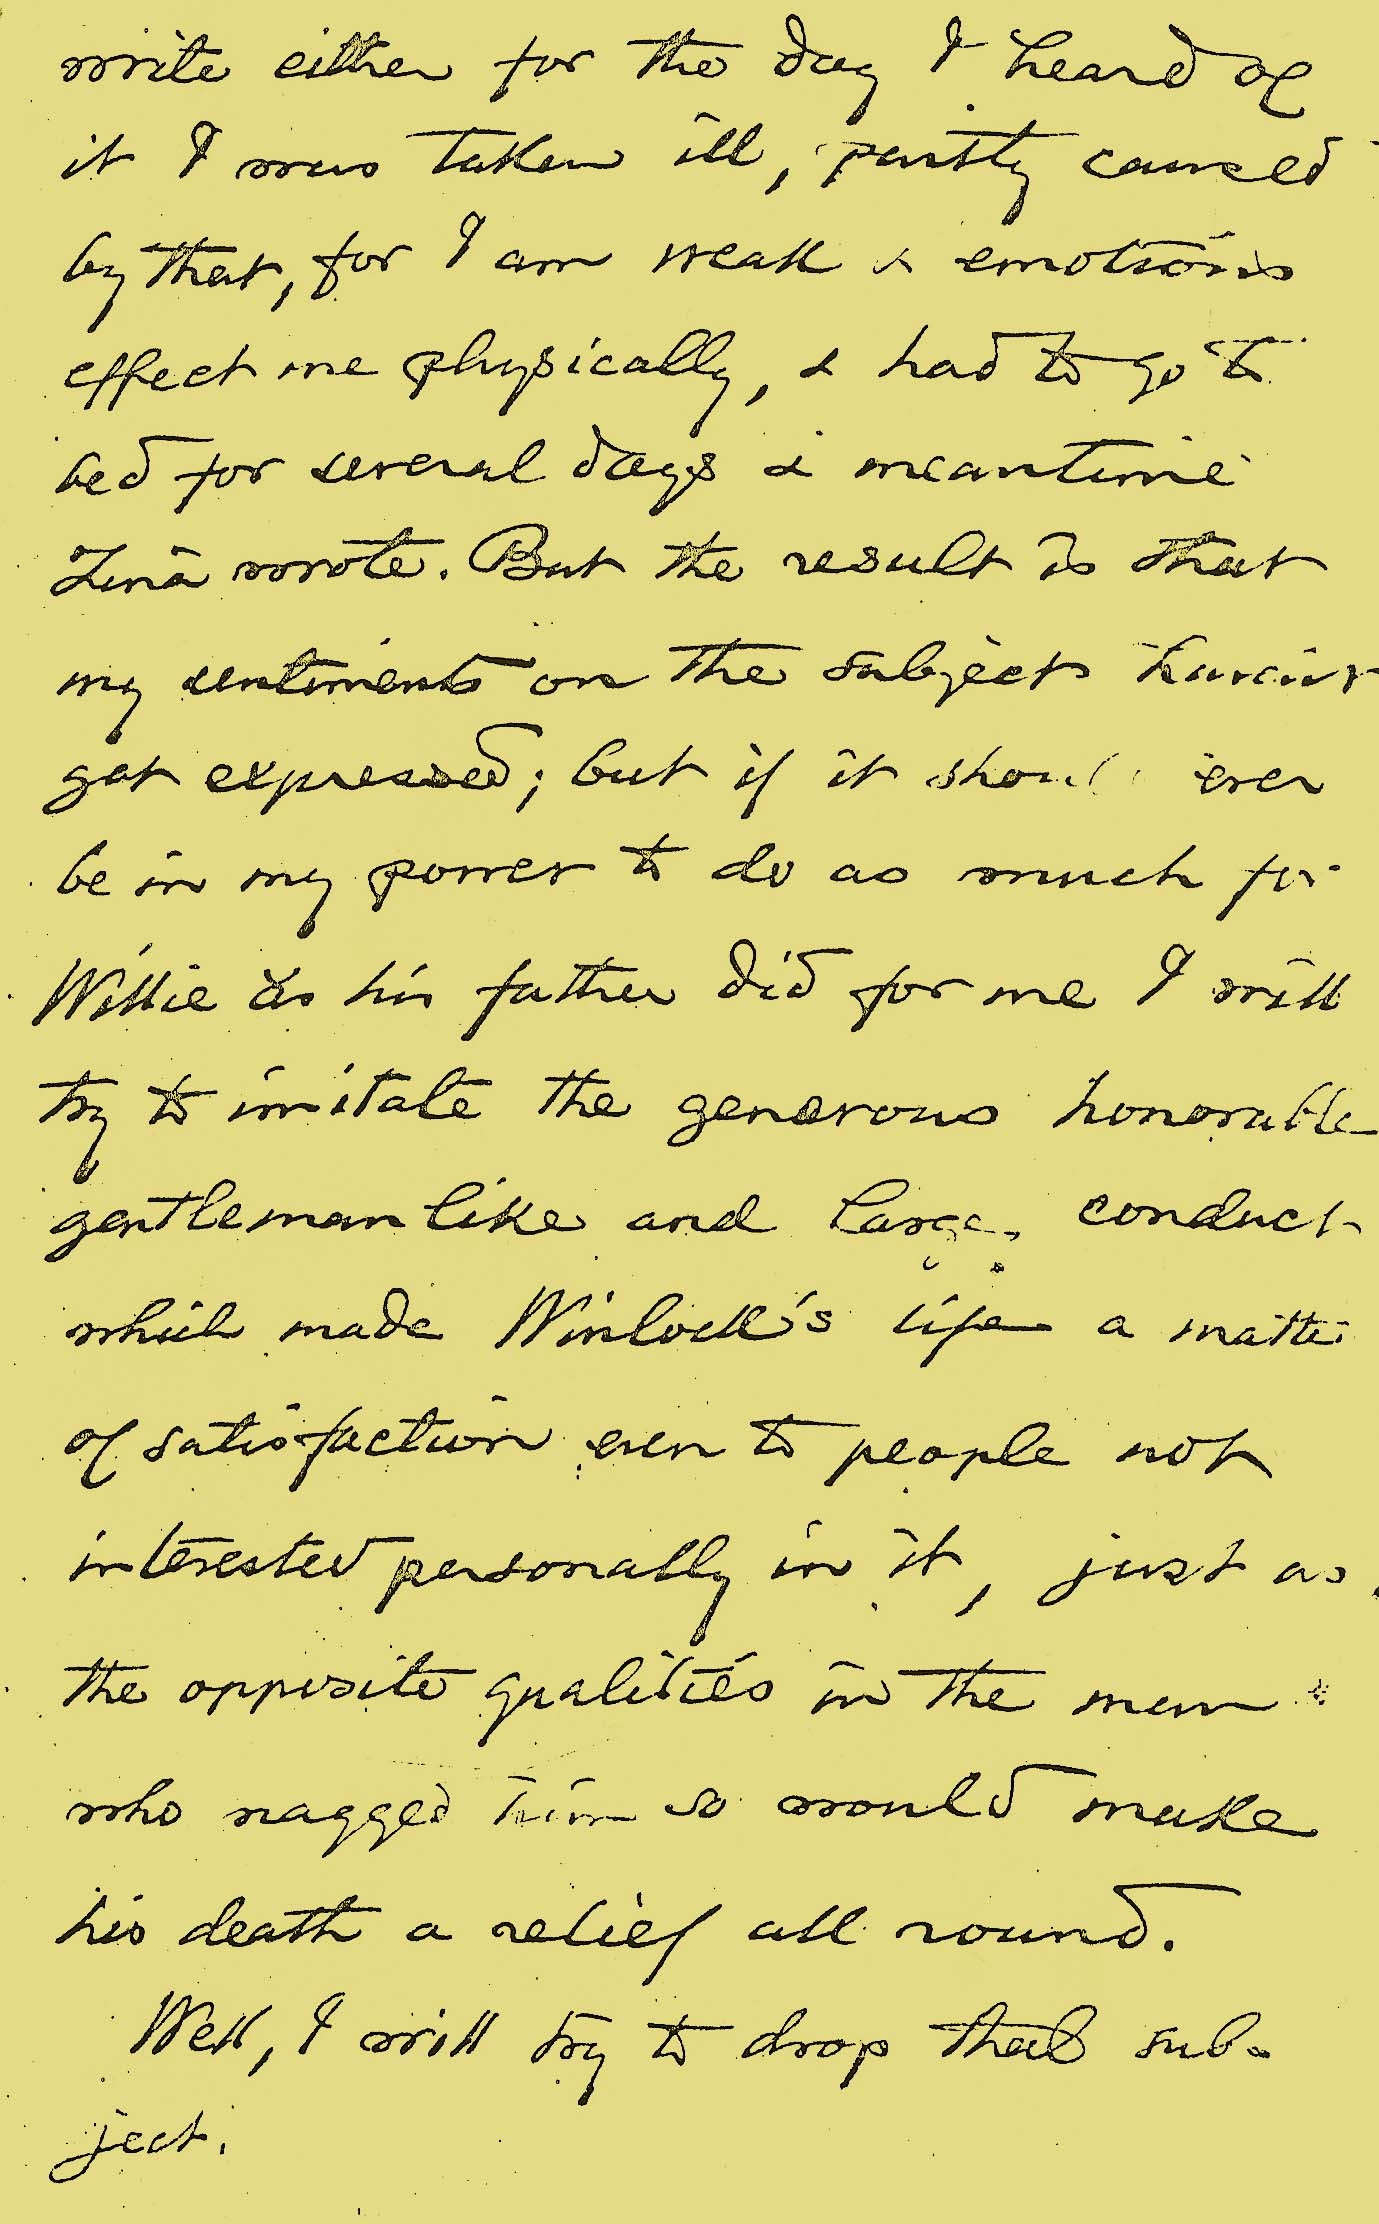 write either for the day I heard of
it I was taken ill, partly caused
by that, for I am weak & emotions
effect me physically, & had to go to
bed for several days & meantime
Zina wrote. But the result is that
my sentiments on the subject haven't
got expressed; but if it should ever
be in my power to do as much for
Willie as his father did for me I will
try to imitate the generous honorable
gentlemanlike and large conduct
which made Winlock's life a matter
of satisfaction even to people not
interested personally in it, just as
the opposite qualities in the men
who nagged him so would make
his death a relief all round.
Well, I will try to drop that sub-
ject.